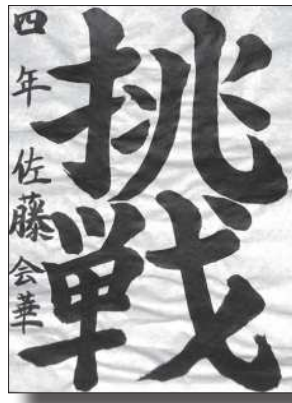 挑戦
四年 佐藤会華